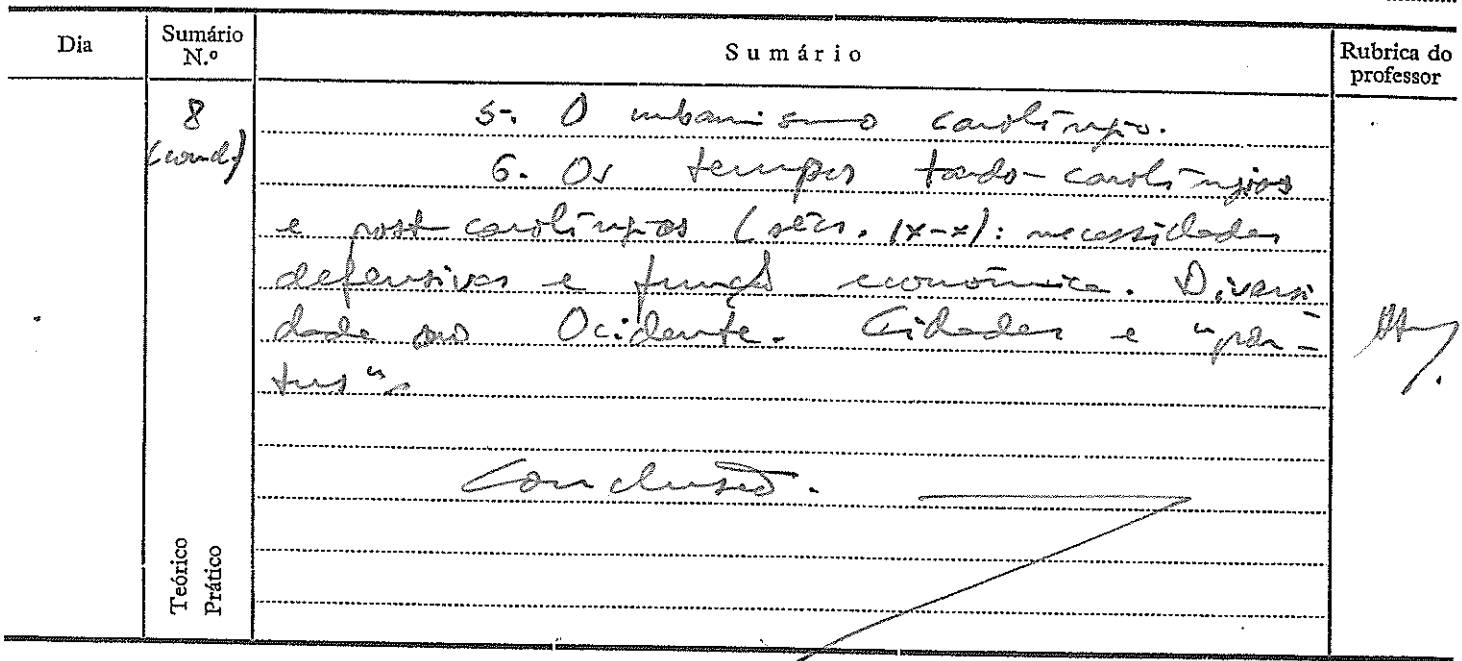 Dia
Sumário N.º
Sumário
Rubrica do professor
8 (cond.)
5. O urbanismo carolíngio.
6. Os tempos tardo-carolíngios
e post-carolíngios (sécs. IX-X): necessidades
defensivas e função económica. Diversi-
dade no Ocidente. Cidades e "por-
tus".
Conclusão.
Teórico
Prático